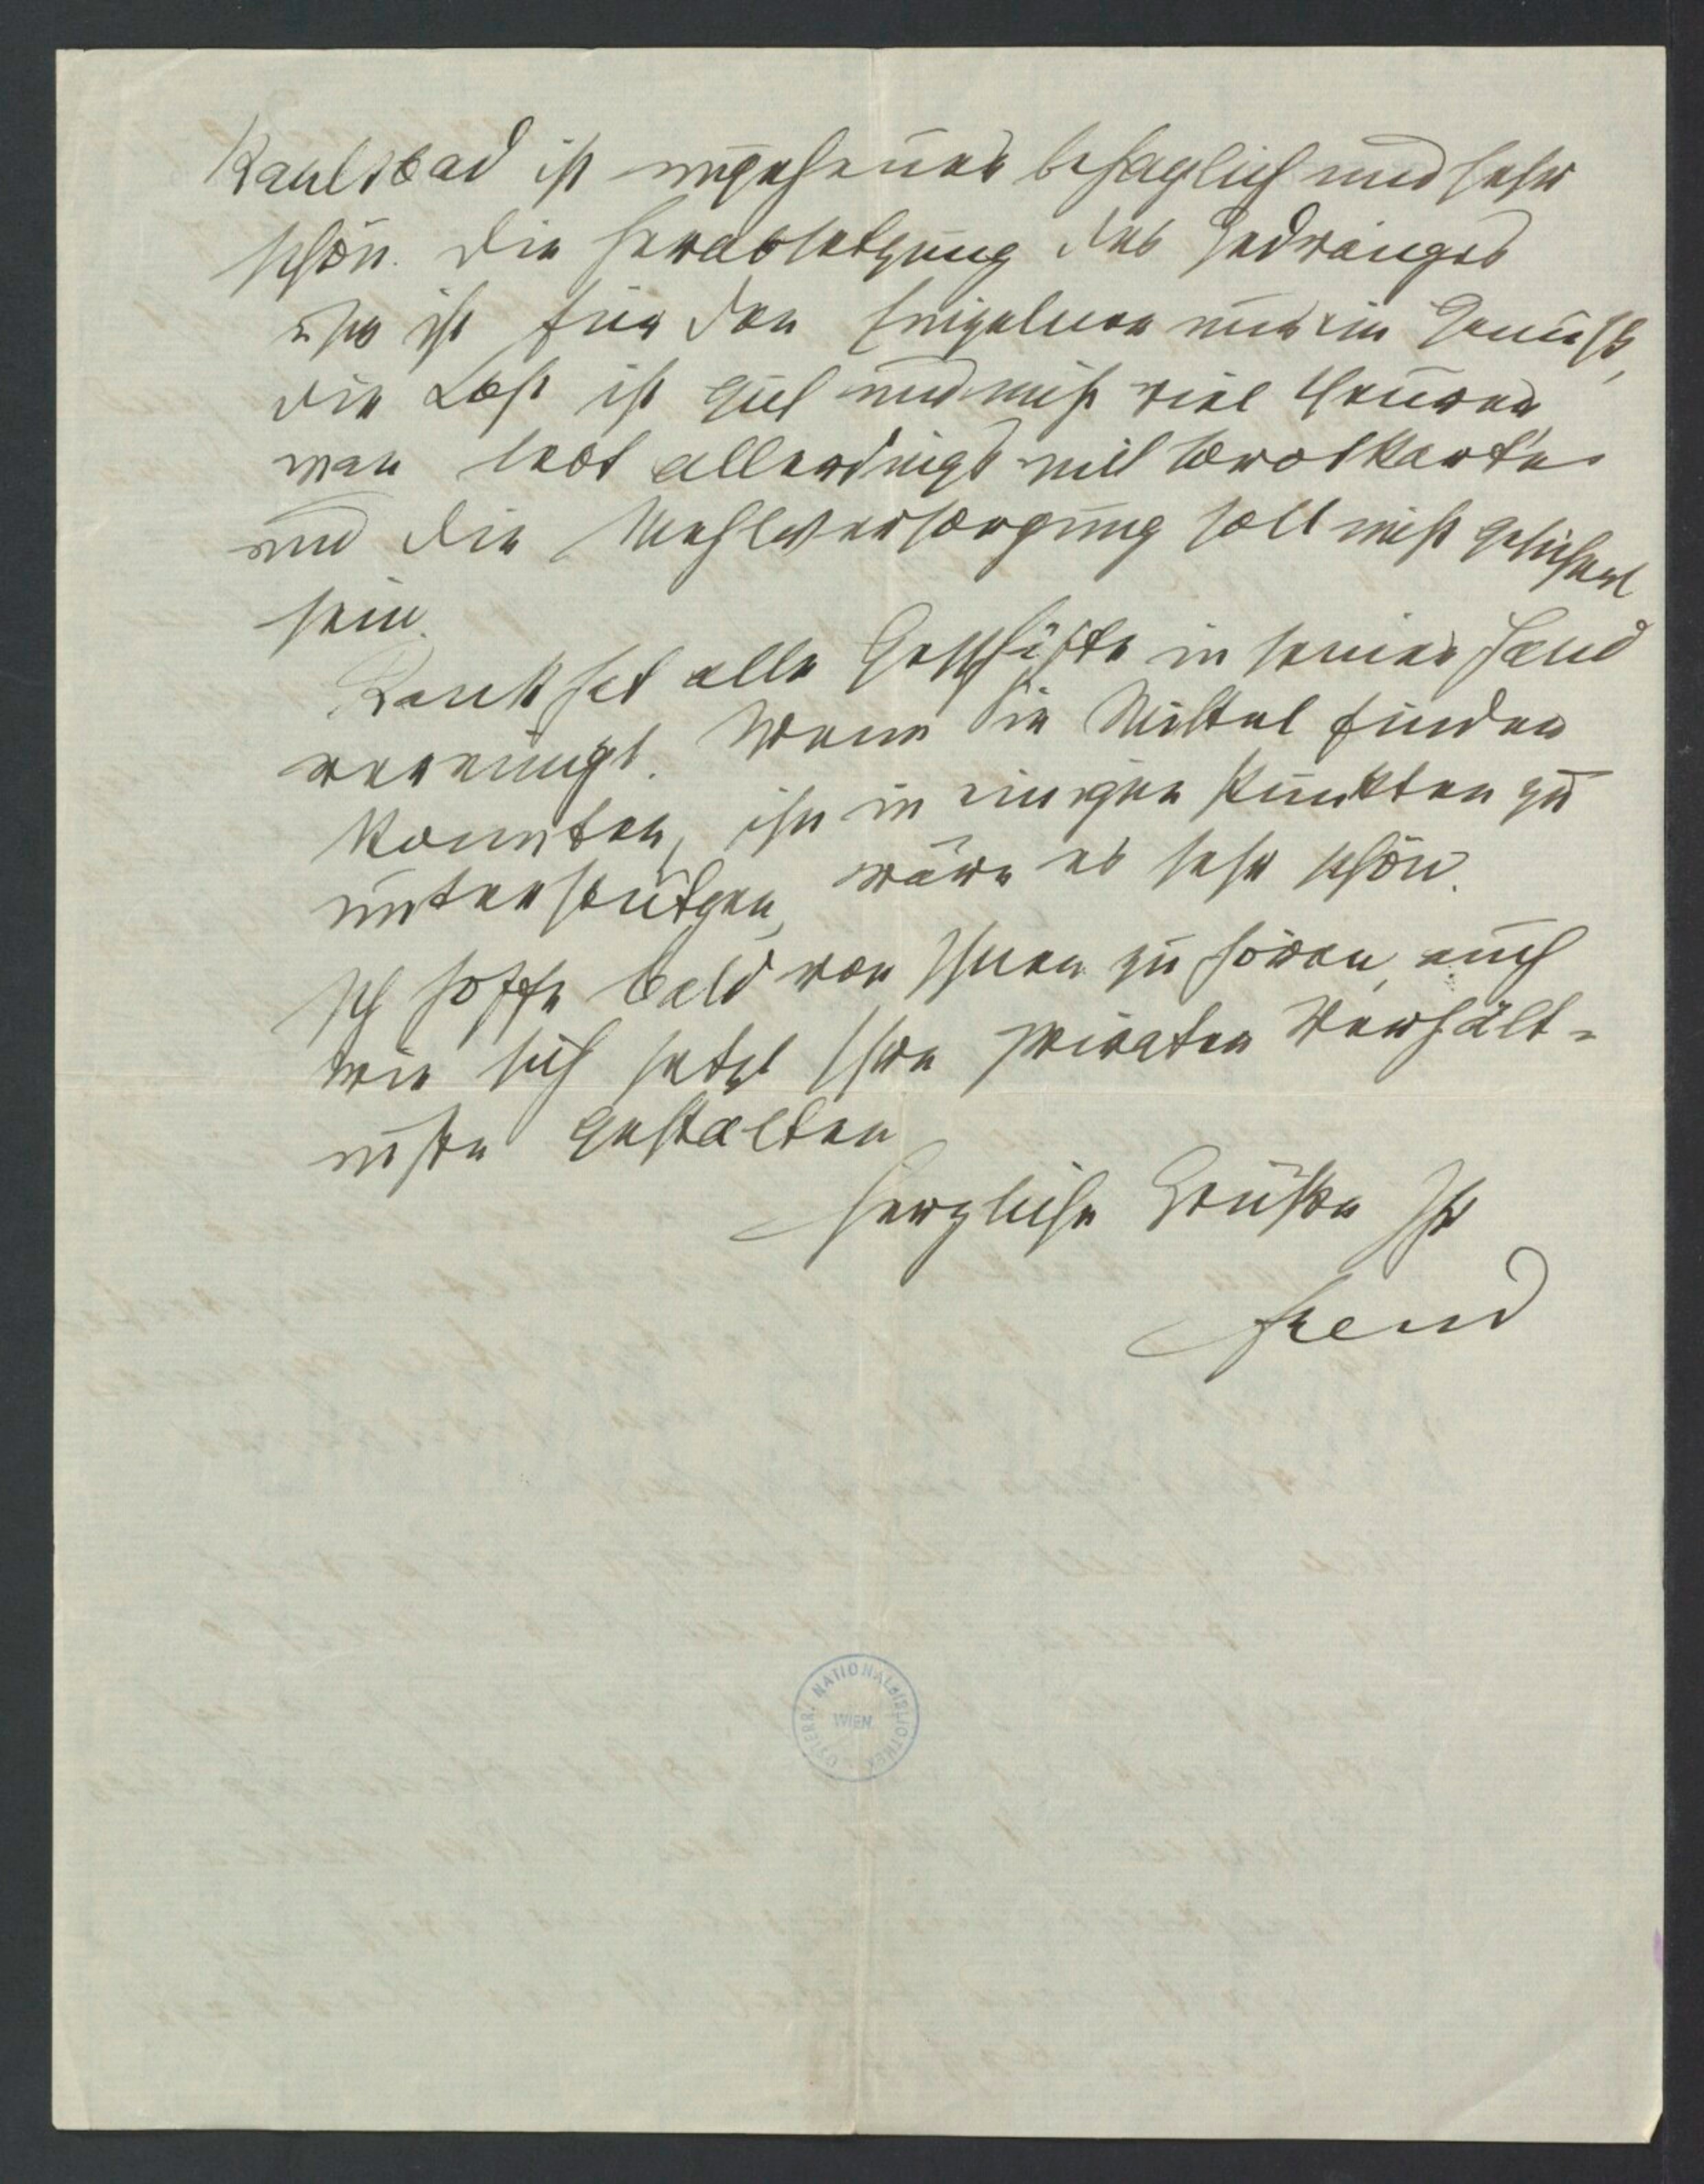 Karlsbad ist ungeheuer behaglich und sehr
schön. Die Herabsetzung des Gedränges
hier ist für den Einzelnen nur ein Genuß,
die Kost ist gut und nicht viel teurer,
man lebt allerdings mit Brotkarte
und die Mehlversorgung soll nicht gesichert
sein.
Rank hat alle Geschäfte in seiner Hand
vereinigt. Wenn Sie Mittel finden
könnten, ihn in einigen Punkten zu
unterstützen, wäre es sehr schön.
Ich hoffe bald von Ihnen zu hören, auch
wie sich jetzt Ihre privaten Verhält-
nisse gestalten
Herzliche Grüße Ihr
Freud
ÖSTERR. NATIONALBIBLIOTHEK
WIEN